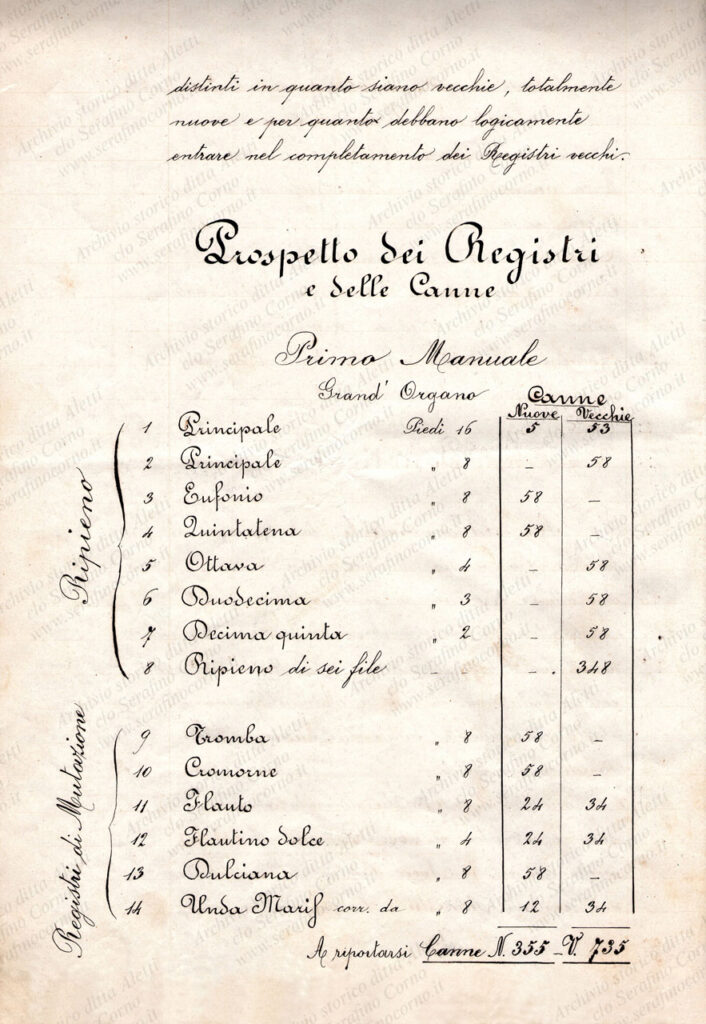 distinti in quanto siano vecchie, totalmente
nuove e per quanto debbano logicamente
entrare nel completamento dei Registri vecchi.
Prospetto dei Registri
e delle Canne
Primo Manuale
Grand' Organo
Canne
Nuove Vecchie
Ripieno
1 Principale Piedi 16 5 53
2 Principale " 8 – 58
3 Eufonio " 8 58 –
4 Quintatena " 8 58 –
5 Ottava " 4 – 58
6 Duodecima " 3 – 58
7 Decima quinta " 2 – 58
8 Ripieno di sei file – – – 348
Registri di Mutazione
9 Tromba " 8 58 –
10 Cromorne " 8 58 –
11 Flauto " 8 24 34
12 Flautino dolce " 4 24 34
13 Dulciana " 8 58 –
14 Unda Maris corr. da " 8 12 34
A riportarsi Canne N. 355 – V. 735
Archivio storico ditta Aletti
c/o Serafino Corno
www.serafinocorno.it